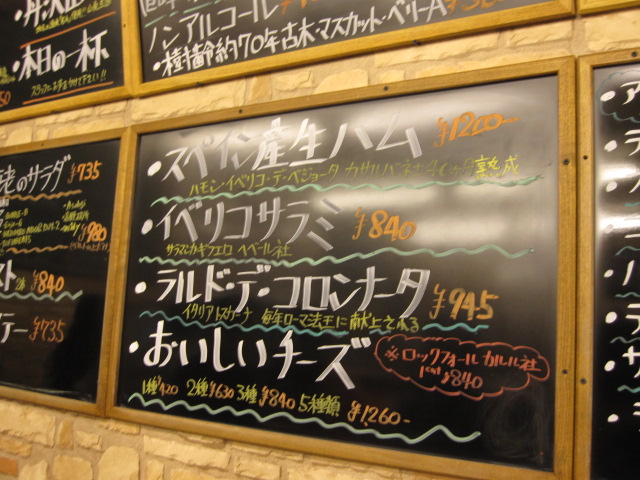 本日の一杯
ノンアルコール
・樹齢約70年古木・マスカット・ベリーA
老のサラダ ¥735
¥980
¥840
¥735
・スペイン産生ハム ¥1200-
ハモン・イベリコ・デ・ベジョータ
熟成
・イベリコサラミ ¥840
・ラルド・デ・コロンナータ ¥945
イタリアトスカーナ 毎年ローマ法王に献上される
・おいしいチーズ
※ロックフォール カルル社
¥840
1種¥420 2種¥630 3種¥840 5種類 ¥1260-